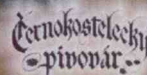 Černokostelecký
pivovár